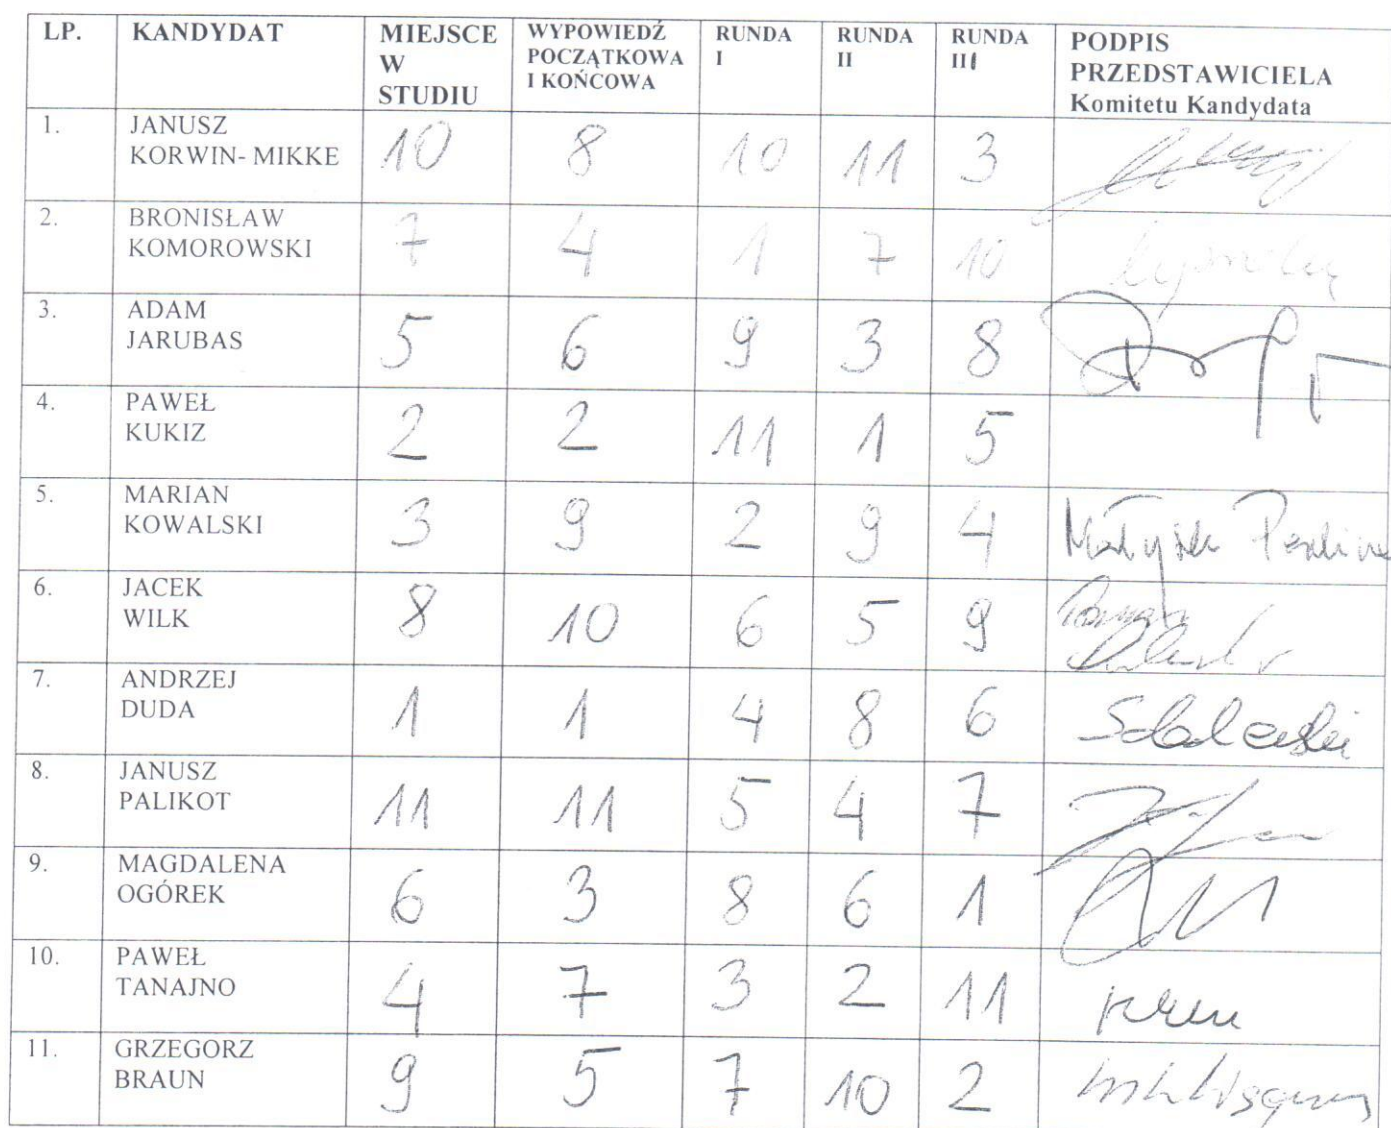 LP. KANDYDAT MIEJSCE W STUDIU WYPOWIEDŹ POCZĄTKOWA I KOŃCOWA RUNDA I RUNDA II RUNDA III PODPIS PRZEDSTAWICIELA Komitetu Kandydata
1. JANUSZ KORWIN- MIKKE 10 8 10 11 3
2. BRONISŁAW KOMOROWSKI 7 4 1 7 10
3. ADAM JARUBAS 5 6 9 3 8
4. PAWEŁ KUKIZ 2 2 11 1 5
5. MARIAN KOWALSKI 3 9 2 9 4
6. JACEK WILK 8 10 6 5 9
7. ANDRZEJ DUDA 1 1 4 8 6
8. JANUSZ PALIKOT 11 11 5 4 7
9. MAGDALENA OGÓREK 6 3 8 6 1
10. PAWEŁ TANAJNO 4 7 3 2 11
11. GRZEGORZ BRAUN 9 5 7 10 2